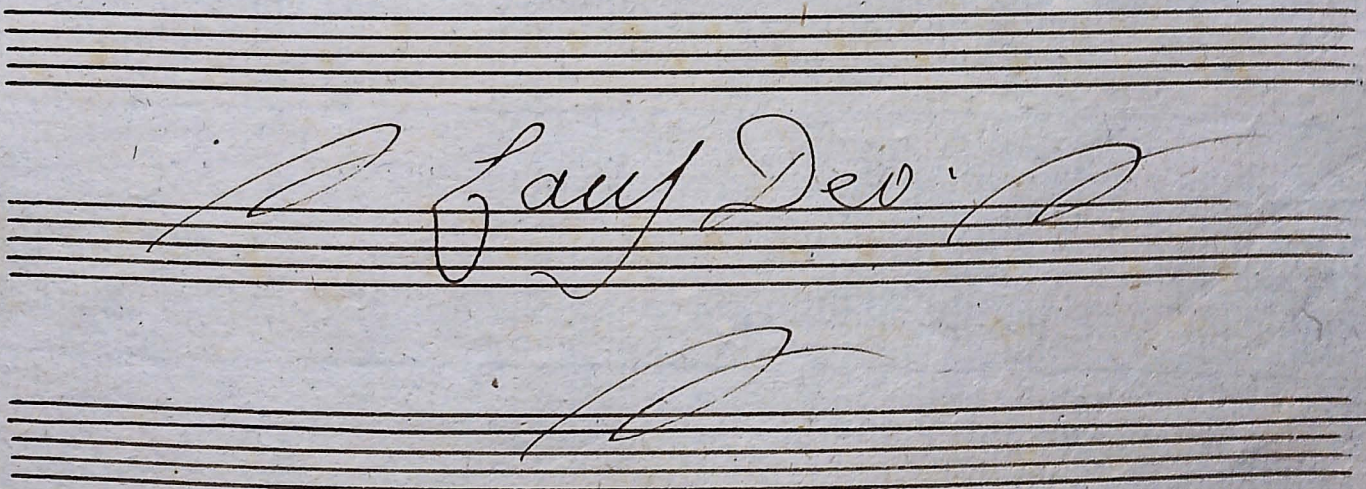 Laus Deo.